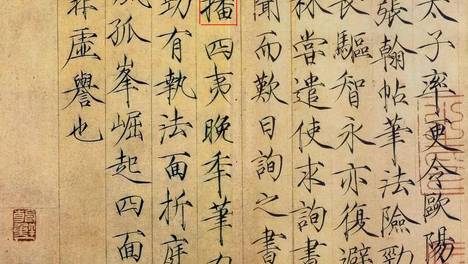 太子率更令歐陽
張翰帖筆法險勁
長驅智永亦復避
林嘗遣使求詢書
聞而歎曰詢之書
播四夷晚秊筆力
勁有執法面折庭
風孤峯崛起四面
非虛譽也